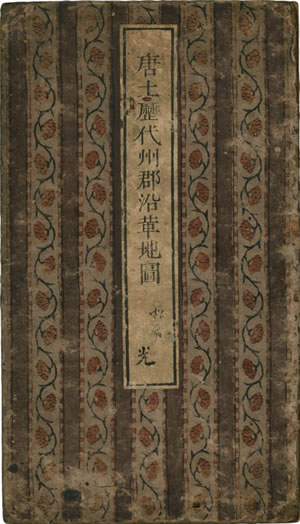 唐土歷代州郡沿革地圖
光